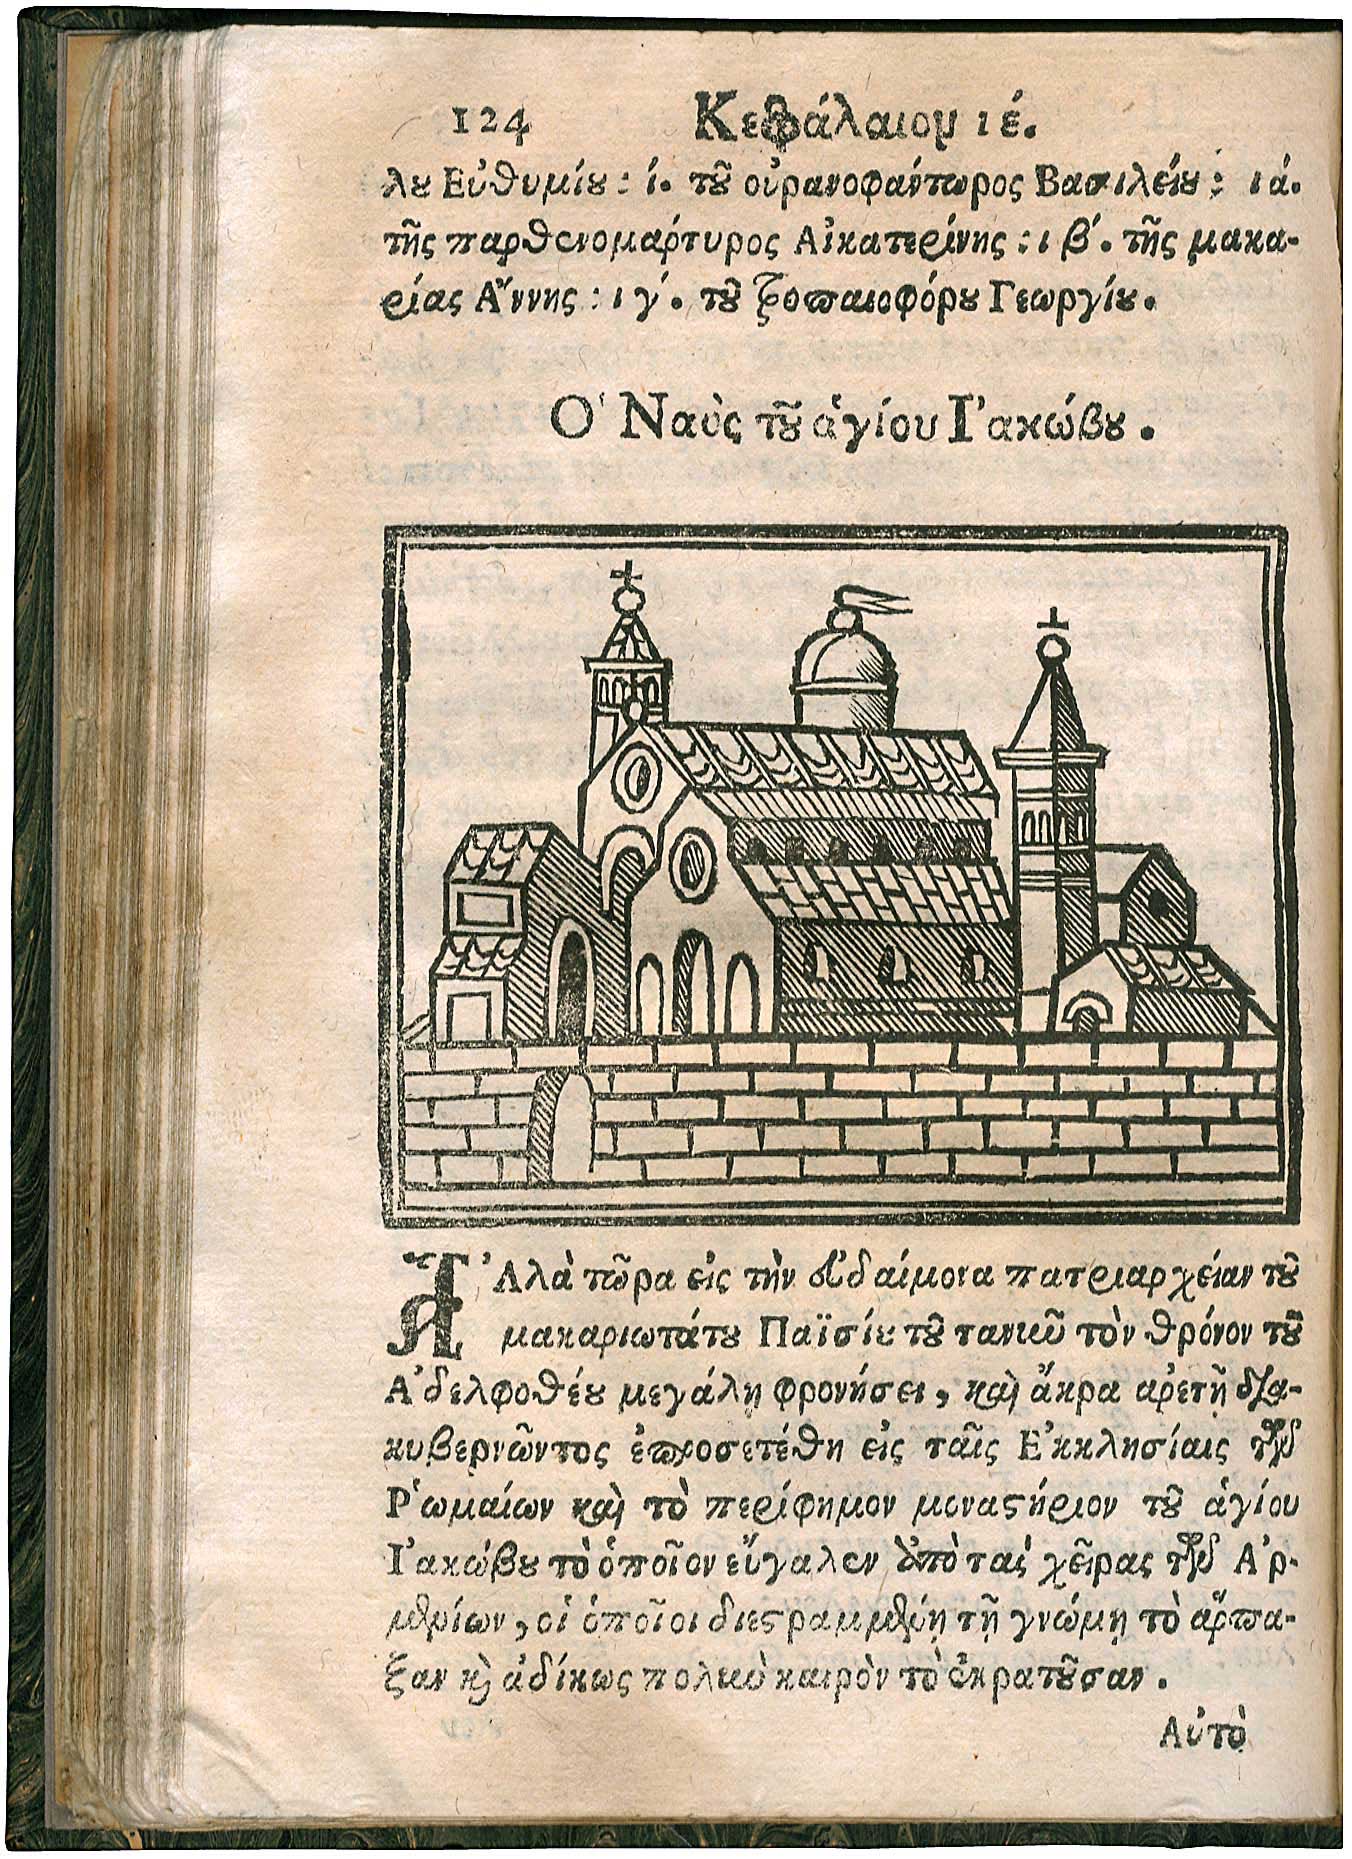 124 Κεφάλαιον ιέ.
λȣ Εὐθυμίȣ : ί. τȣ͂ οὐρανοφάντωρος Βασιλείȣ : ιά.
τῆς παρθενομάρτυρος Αἰκατερίνης : ιβ΄. τῆς μακα-
ρίας Ἄννης : ιγ΄. τȣ͂ τροπαιοφόρȣ Γεωργίȣ.
Ὁ Ναὸς τȣ͂ ἁγίου Ἰακώβȣ.
ἈΛλὰ τῶρα εἰς τὴν εὐδαίμονα πατριαρχείαν τȣ͂
μακαριωτάτȣ Παϊσίȣ τȣ͂ τανιῦ τὸν θρόνον τȣ͂
Ἀδελφοθέȣ μεγάλῃ φρονήσει, καὶ ἄκρα ἀρετῇ δια-
κυβερνῶντος ἐπροσετέθη εἰς ταῖς Ἐκκλησίαις τῶν
Ῥωμαίων καὶ τὸ περίφημον μοναστήριον τȣ͂ ἁγίου
Ἰακώβȣ τὸ ὁποῖον εὔγαλεν ἀπὸ ταὶ χεῖρας τῶν Ἀρ-
μενίων, οἱ ὁποῖοι διεστραμμένῃ τῇ γνώμῃ τὸ ἅρπα-
ξαν κὶ ἀδίκως πολιὺ καιρὸν τὸ ἐκρατȣ͂σαν.
Αὐτὸ